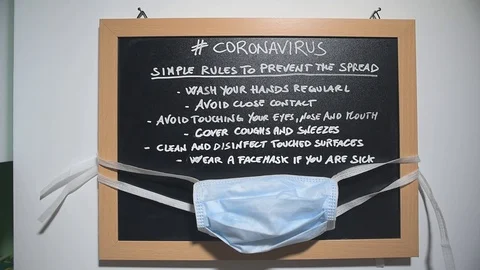 # CORONAVIRUS
SIMPLE RULES TO PREVENT THE SPREAD
- WASH YOUR HANDS REGULARL
- AVOID CLOSE CONTACT
- AVOID TOUCHING YOUR EYES, NOSE AND MOUTH
- COVER COUGHS AND SNEEZES
- CLEAN AND DISINFECT TOUCHED SURFACES
- WEAR A FACEMASK IF YOU ARE SICK